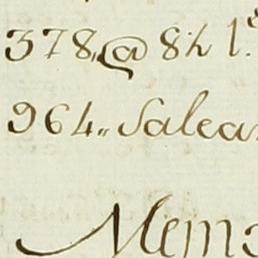 378,, @ 84 l.
964,, Salea
Memo